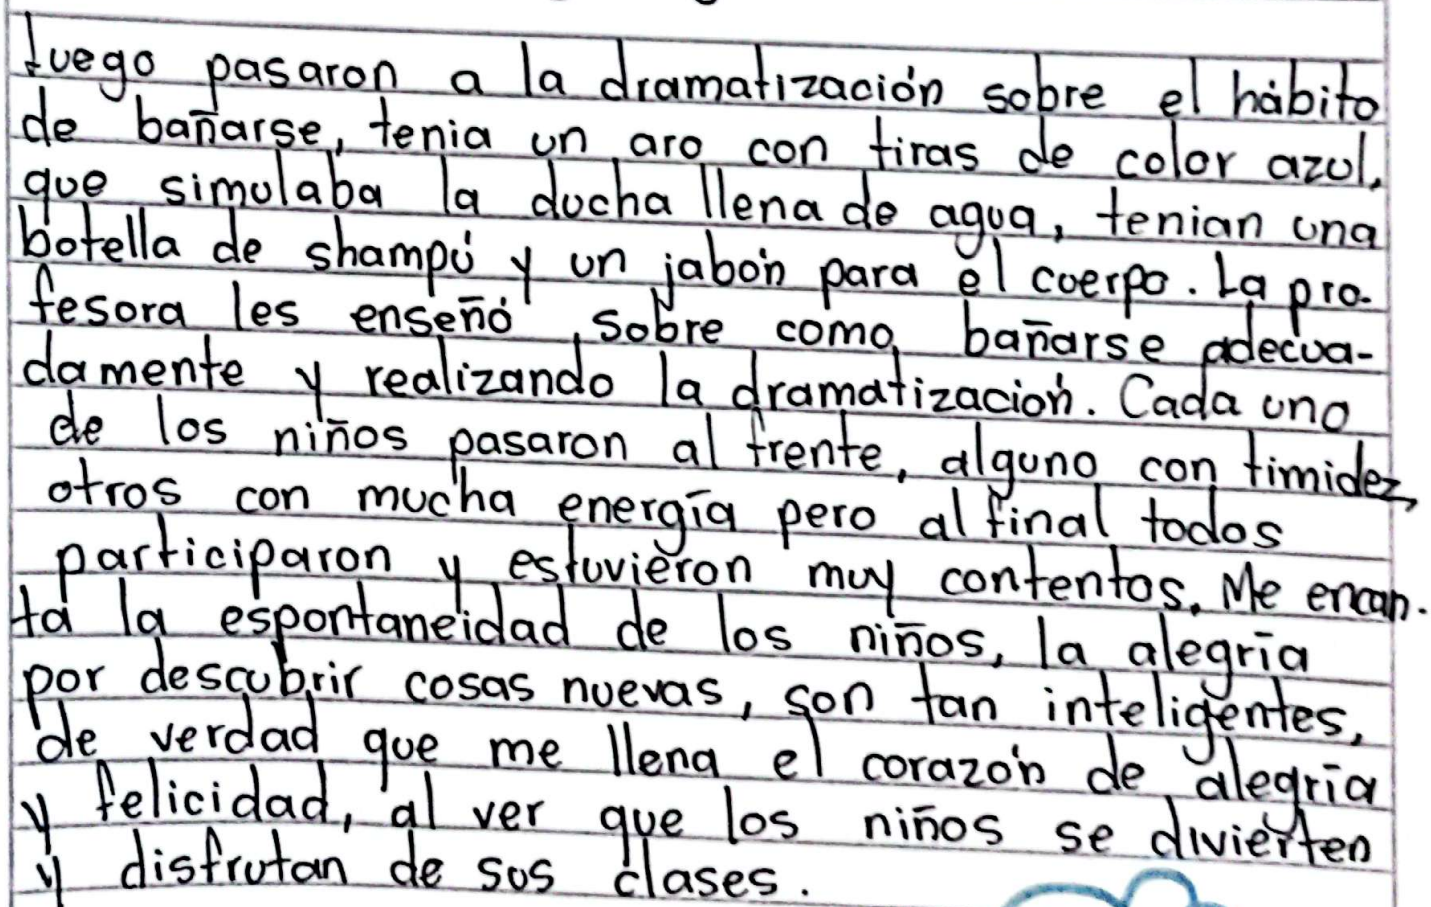 luego pasaron a la dramatización sobre el hábito
de bañarse, tenia un aro con tiras de color azul,
que simulaba la ducha llena de agua, tenian una
botella de shampú y un jabón para el cuerpo. La pro-
fesora les enseñó sobre como bañarse adecua-
damente y realizando la dramatización. Cada uno
de los niños pasaron al frente, alguno con timidez,
otros con mucha energía pero al final todos
participaron y estuvieron muy contentos. Me encan-
ta la espontaneidad de los niños, la alegría
por descubrir cosas nuevas, son tan inteligentes,
de verdad que me llena el corazón de alegría
y felicidad, al ver que los niños se divierten
y disfrutan de sus clases.